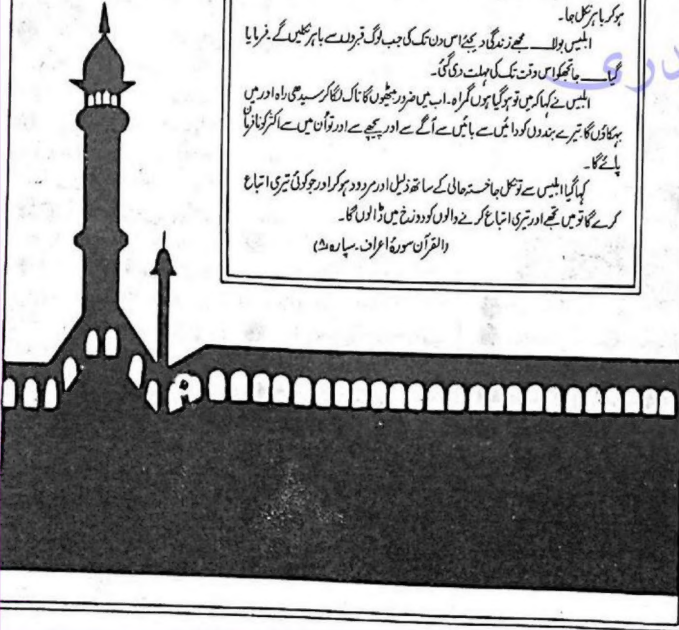 ہو کر باہر نکل جا۔
ابلیس بولا — مجھے زندگی دیجئے اس دن تک کی جب لوگ قبروں سے باہر نکلیں گے۔ فرمایا
گیا — جا تجھکو اس وقت تک کی مہلت دی گئی۔
ابلیس نے کہا کہ میں تو ہو گیا ہوں گمراہ۔ اب میں ضرور بیٹھوں گا تاک لگا کر سیدھی راہ اور میں
بہکاؤں گا تیرے بندوں کو دائیں سے بائیں سے آگے سے اور پیچھے سے اور تو اُن میں سے اکثر کو نافرمان
پائے گا۔
کہا گیا ابلیس سے تو نکل جا خستہ حالی کے ساتھ ذلیل اور مردود ہو کر اور جو کوئی تیری اتباع
کرے گا تو میں تجھے اور تیری اتباع کرنے والوں کو دوزخ میں ڈالوں گا۔
(القرآن سورۂ اعراف۔ سپارہ ۸)